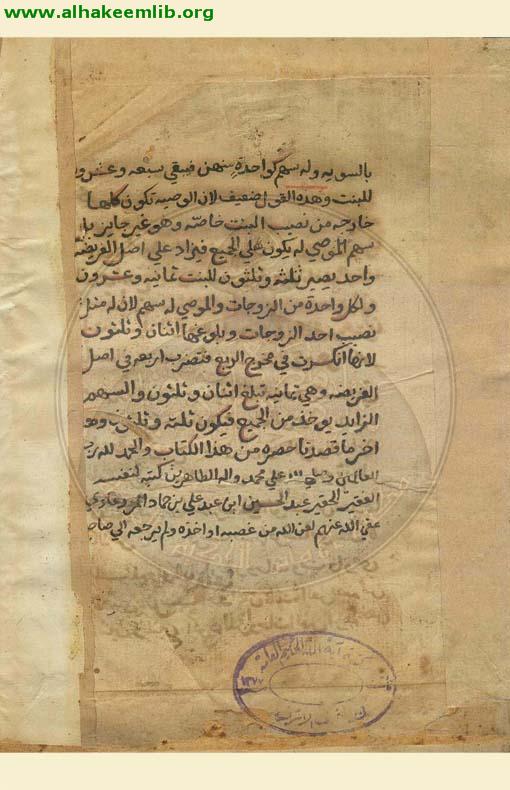 www.alhakeemlib.org
بالسويه وله سهم كواحدة منهن فيبقي سبعه وعشرو
للبنت وهذه القول ضعيف لان الوصيه تكون كلها
خارجه من نصيب البنت خاصه وهو غير جايز بل
سهم الموصي له يكون علي الجميع فيزاد علي اصل الفريضه
واحد يصير ثلثه وثلثون للبنت ثمانيه وعشرون
ولكل واحدة من الزوجات والموصي له سهم لان له مثل
نصيب احد الزوجات وبلوغها اثنان وثلثون
لانها انكسرت في مخرج الربع فتضرب اربعه في اصل
الفريضه وهي ثمانيه تبلغ اثنان وثلثون والسهم
الزايد يوخذ من الجميع فيكون ثلثة وثلثين وهو
اخر ما قصدنا حصره من هذا الكتاب والحمد لله رب
العالمين علي محمد واله الطاهرين كتبه لنفسه
الفقير الحقير عبد الحسين ابن عبد علي بن حماد
عفي الله عنهم لعن الله من غصبه او اخذه ولم يرجعه الي صاحبه